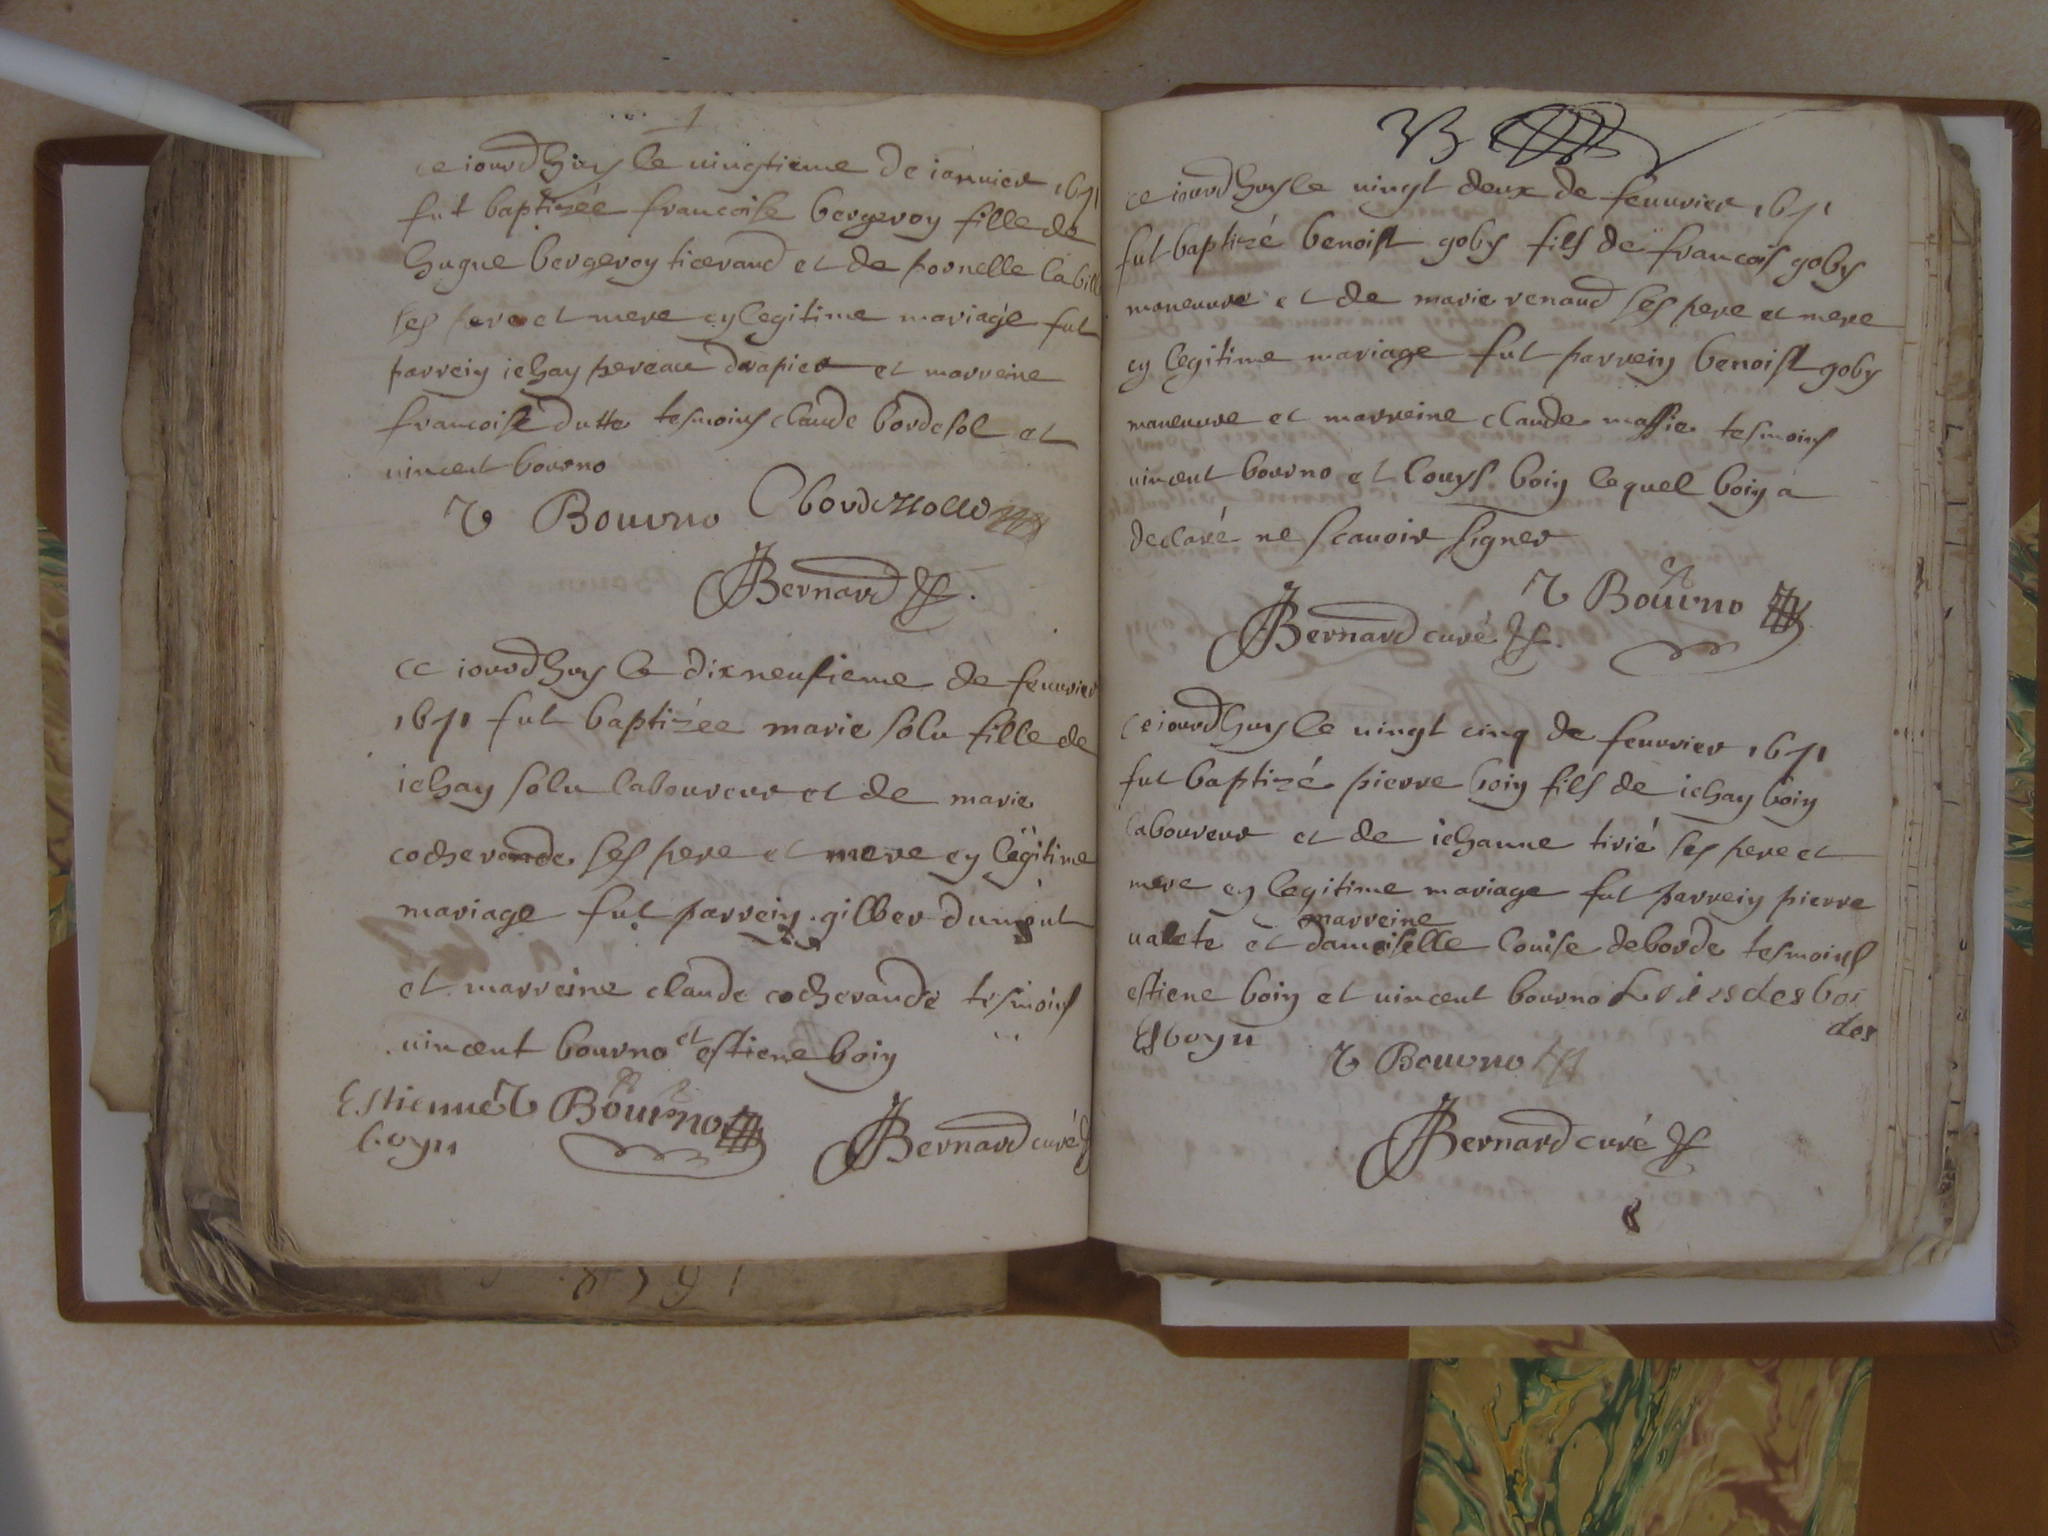 ce iourdhuy le uingtieme de ianuier 1671
fut baptizée francoise bergeroy fille de
hugue bergeroy ticerand et de pornelle labill
ses pere et mere en legitime mariage fut
parrein iehan pereau drapier et marreine
francoise dutte tesmoins claude bordesol et
uincent bourno
V Bourno C bordesolle
JBernard
ce iourdhuy le dixneufieme de feuurier
1671 fut baptizée marie solu fille de
iehan solu laboureur et de marie
cocherande ses pere et mere en legitime
mariage fut parrein gilber dument
et marreine claude cocherande tesmoins
uincent bourno et estiene boin
Estienne V Bourno JBernard curé
boyn
ce iourdhuy le uingt deux de feuurier 1671
fut baptizé benoist goby fils de francois goby
maneuure et de marie renaud ses pere et mere
en legitime mariage fut parrein benoist goby
maneuure et marreine claude massie tesmoins
uincent bourno et louys boin lequel boin a
declaré ne scauoir signer
V Bourno
JBernard curé
ce iourdhuy le uingt cinq de feuurier 1671
fut baptizé pierre boin fils de iehan boin
laboureur et de iehanne tivié ses pere et
mere en legitime mariage fut parrein pierre
marreine
ualete et damoiselle louise deborde tesmoins
estiene boin et uincent bourno Loises des bor
des
E boyn
V Bourno
JBernard curé
8